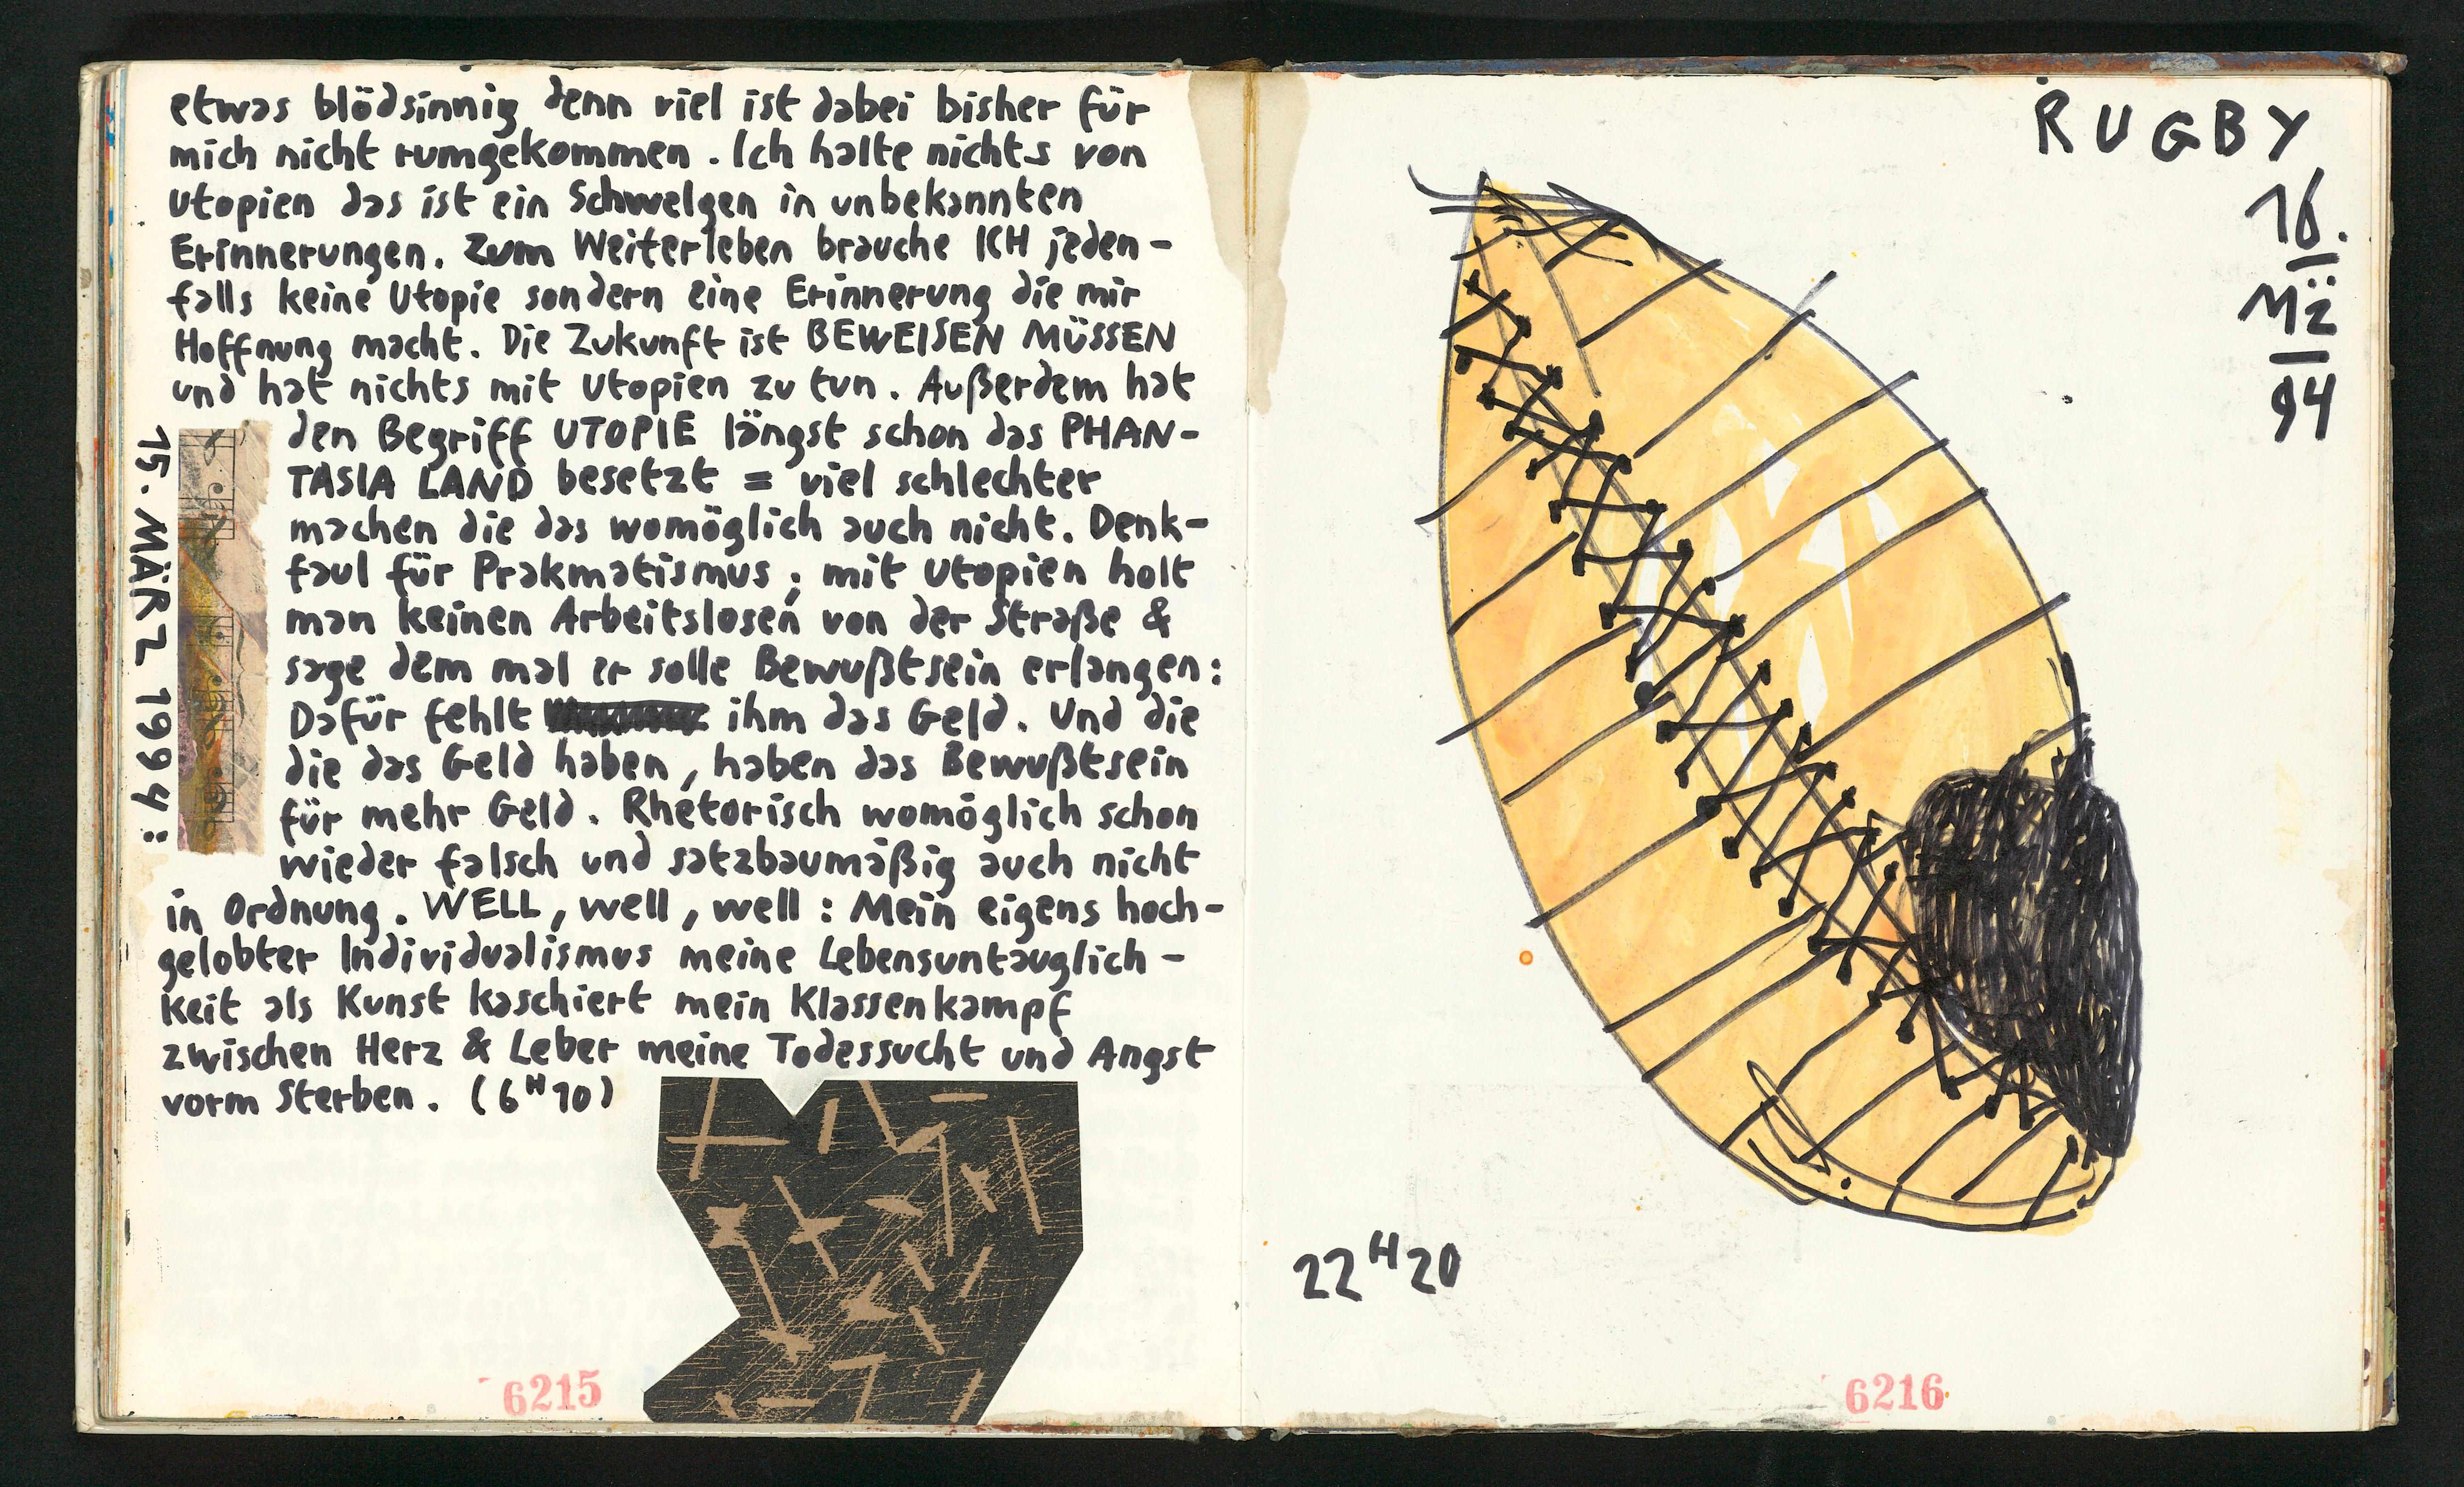 etwas blödsinnig denn viel ist dabei bisher für
mich nicht rumgekommen. Ich halte nichts von
Utopien das ist ein Schwelgen in unbekannten
Erinnerungen. Zum Weiterleben brauche ICH jeden-
falls keine Utopie sondern eine Erinnerung die mir
Hoffnung macht. Die Zukunft ist BEWEISEN MÜSSEN
und hat nichts mit Utopien zu tun. Außerdem hat
den Begriff UTOPIE längst schon das PHAN-
TASIA LAND besetzt = viel schlechter
machen die das womöglich auch nicht. Denk-
faul für Prakmatismus; mit Utopien holt
man keinen Arbeitslosen von der Straße &
sage dem mal er solle Bewußtsein erlangen:
Dafür fehlt ihm das Geld. Und die
die das Geld haben, haben das Bewußtsein
für mehr Geld. Rhetorisch womöglich schon
wieder falsch und satzbaumäßig auch nicht
in Ordnung. WELL, well, well: Mein eigens hoch-
gelobter Individualismus meine Lebensuntauglich-
keit als Kunst kaschiert mein Klassenkampf
zwischen Herz & Leber meine Todessucht und Angst
vorm Sterben. (6H10)
15. MÄRZ 1994:
6215
RUGBY
16.
Mä
94
22H20
6216